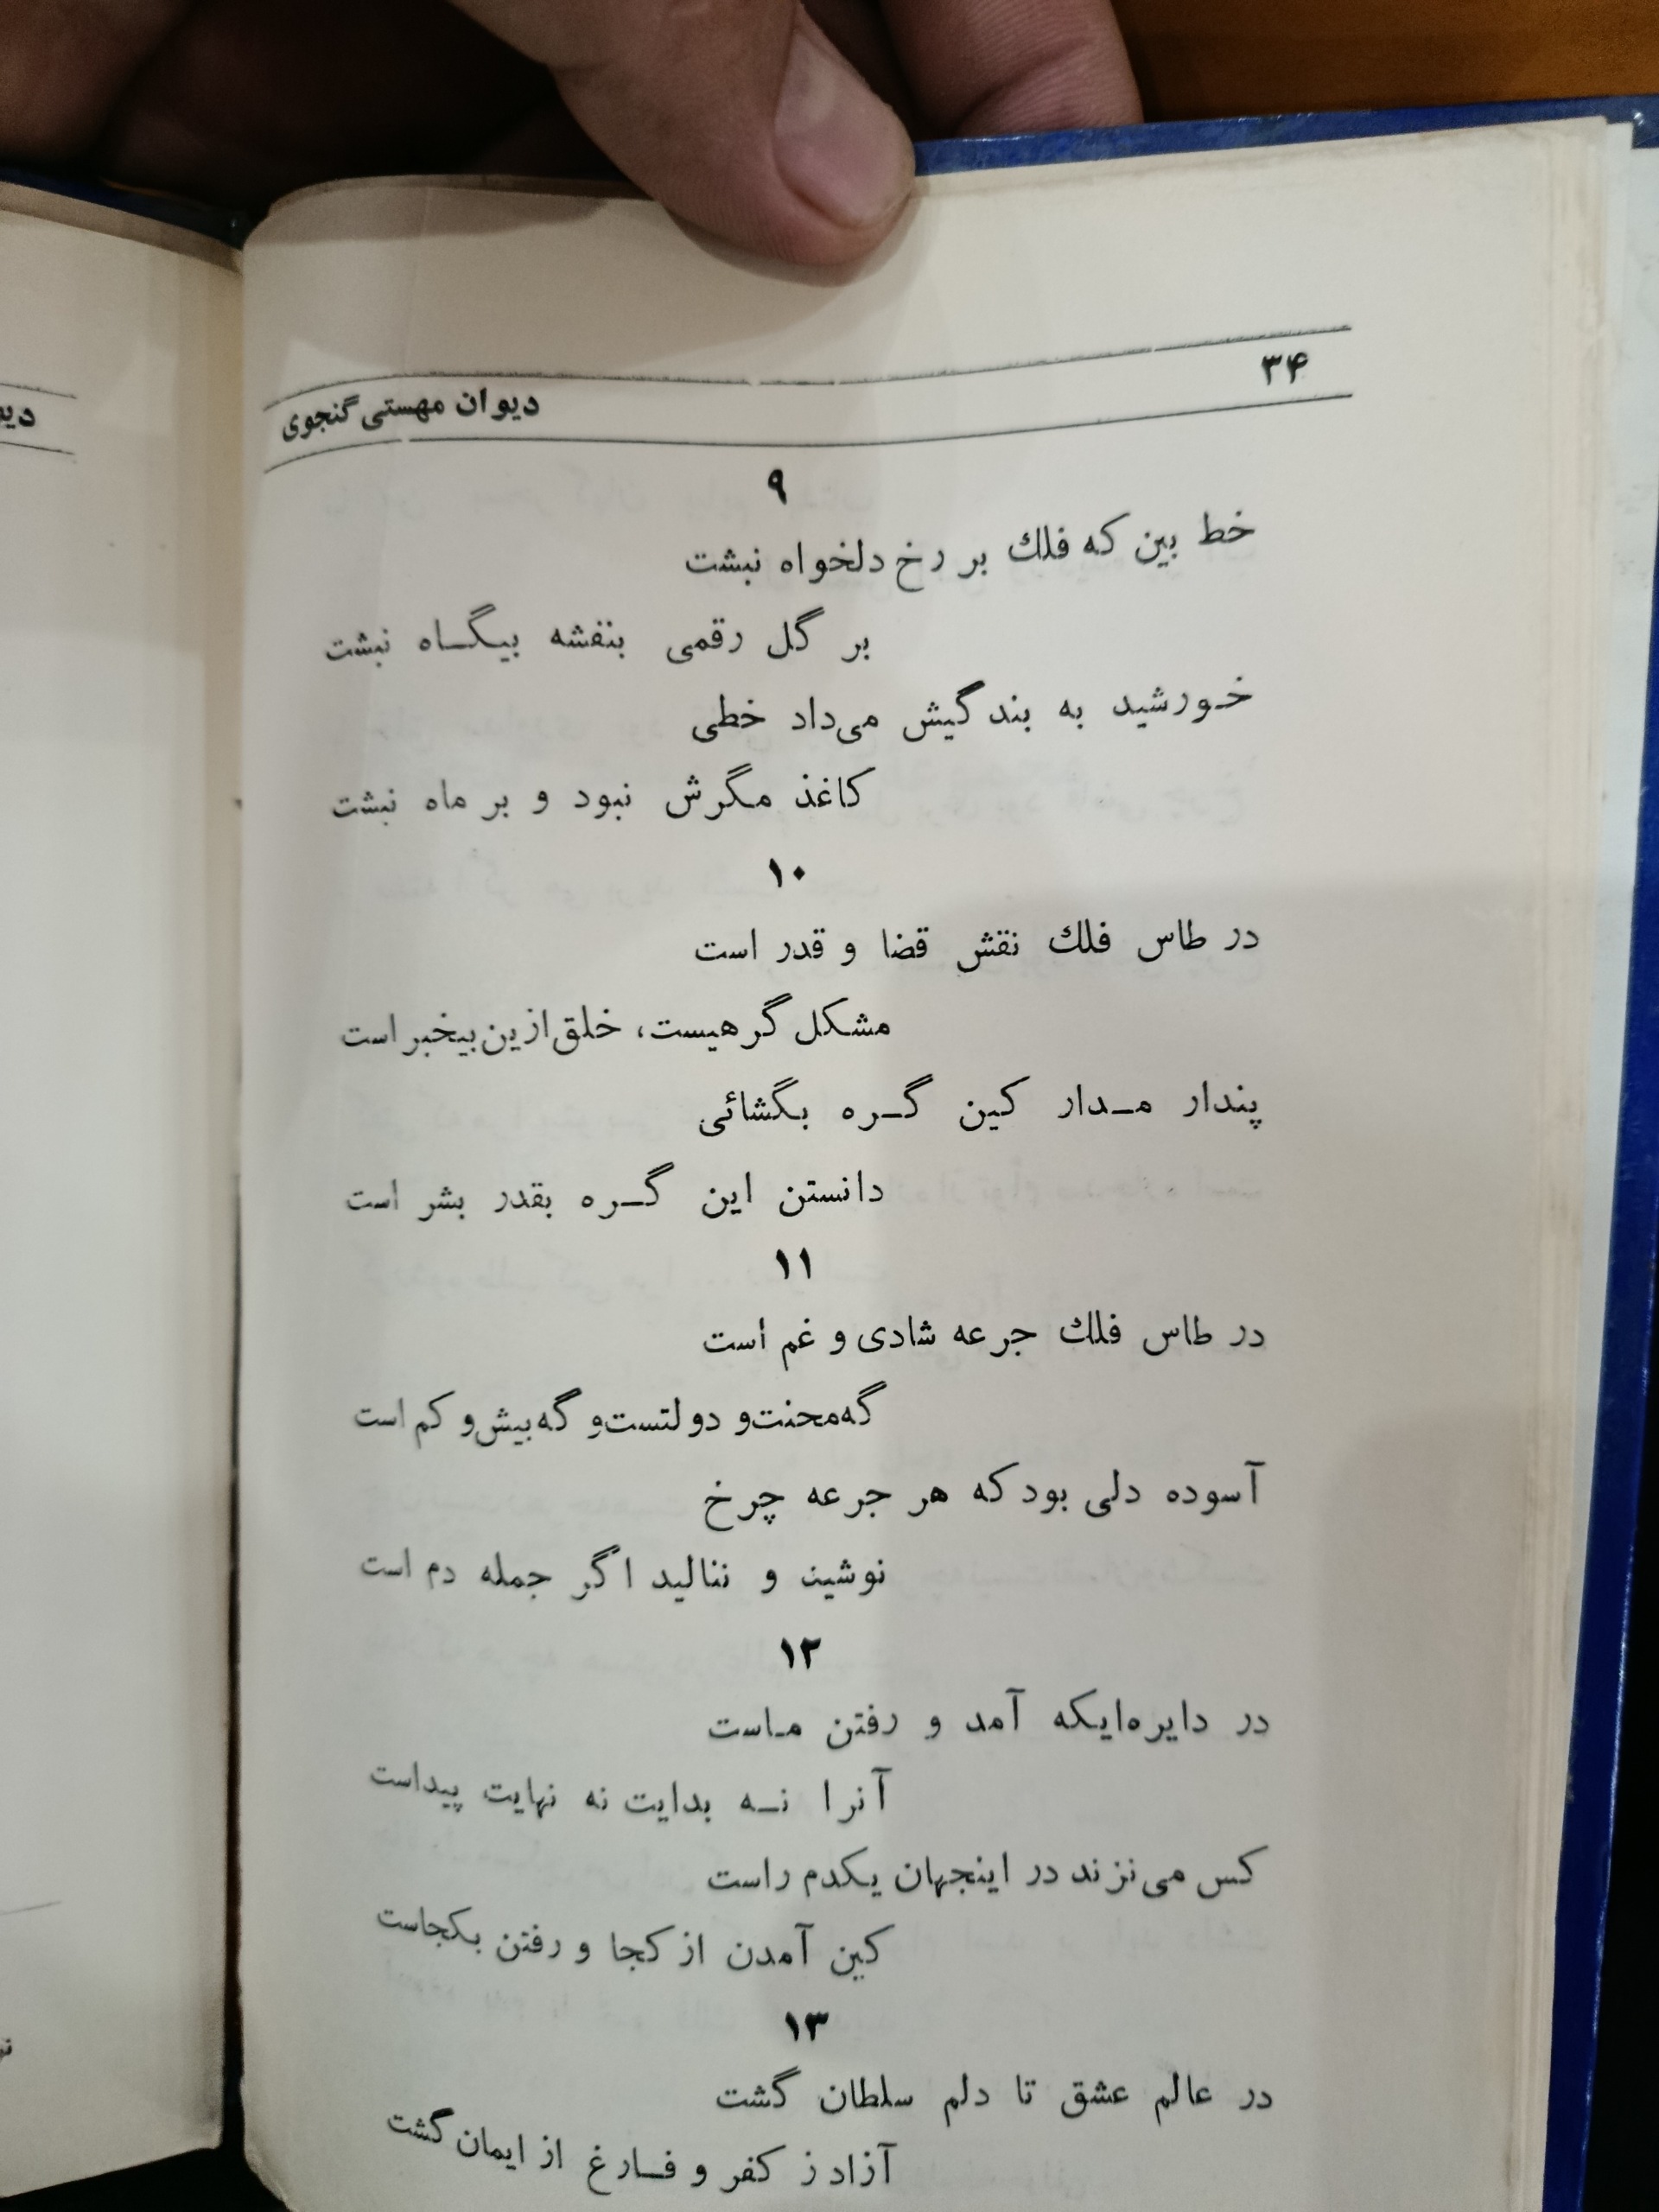 ۳۴
دیوان مهستی گنجوی
۹
خط بین که فلك بر رخ دلخواه نبشت
بر گل رقمی بنفشه بیگــاه نبشت
خـورشید به بندگیش می‌داد خطی
کاغذ مگرش نبود و بر ماه نبشت
۱۰
در طاس فلك نقش قضا و قدر است
مشکل گرهیست، خلق ازین بیخبر است
پندار مــدار کین گــره بگشائی
دانستن این گــره بقدر بشر است
۱۱
در طاس فلك جرعه شادی و غم است
گه محنت و دولتست و گه بیش و کم است
آسوده دلی بود که هر جرعه چرخ
نوشید و ننالید اگر جمله دم است
۱۲
در دایره‌ایکه آمد و رفتن مـاست
آنرا نــه بدایت نه نهایت پیداست
کس می نزند در اینجهان یکدم راست
کین آمدن از کجا و رفتن بکجاست
۱۳
در عالم عشق تا دلم سلطان گشت
آزاد ز کفر و فــارغ از ایمان گشت